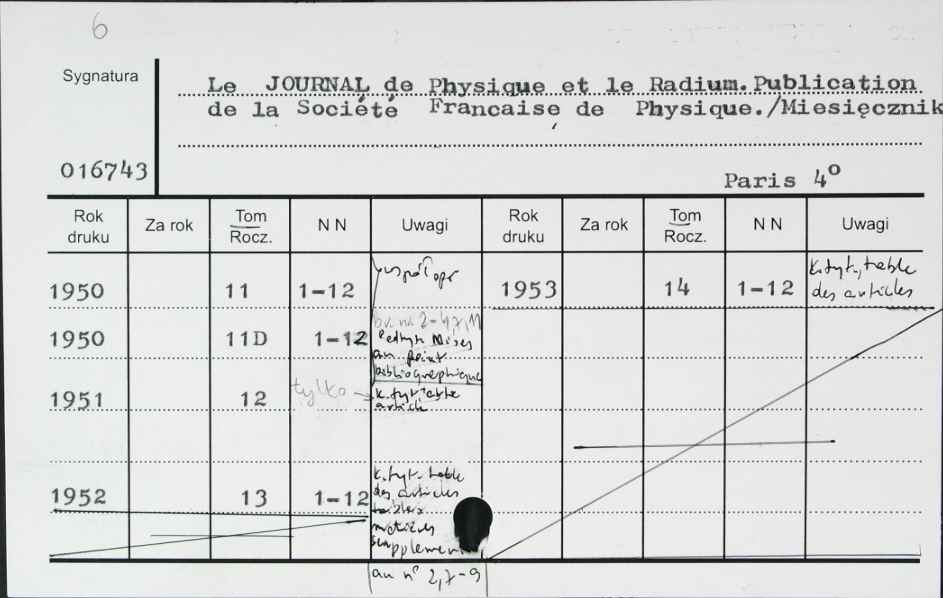 6
Sygnatura
Le JOURNAL de Physique et le Radium.Publication
de la Société Francaise de Physique./Miesięcznik
016743
Paris 4°
Rok druku Za rok Tom Rocz. N N Uwagi Rok druku Za rok Tom Rocz. N N Uwagi
1950 11 1-12 współopr 1953 14 1-12 k.tyt, table
des articles
1950 11D 1-12
au point
bibliographique
1951 12 tylko k.tyt table
article
1952 13 1-12 k.tyt. table
des articles
tables
matières
supplement
au n° 2,7-9